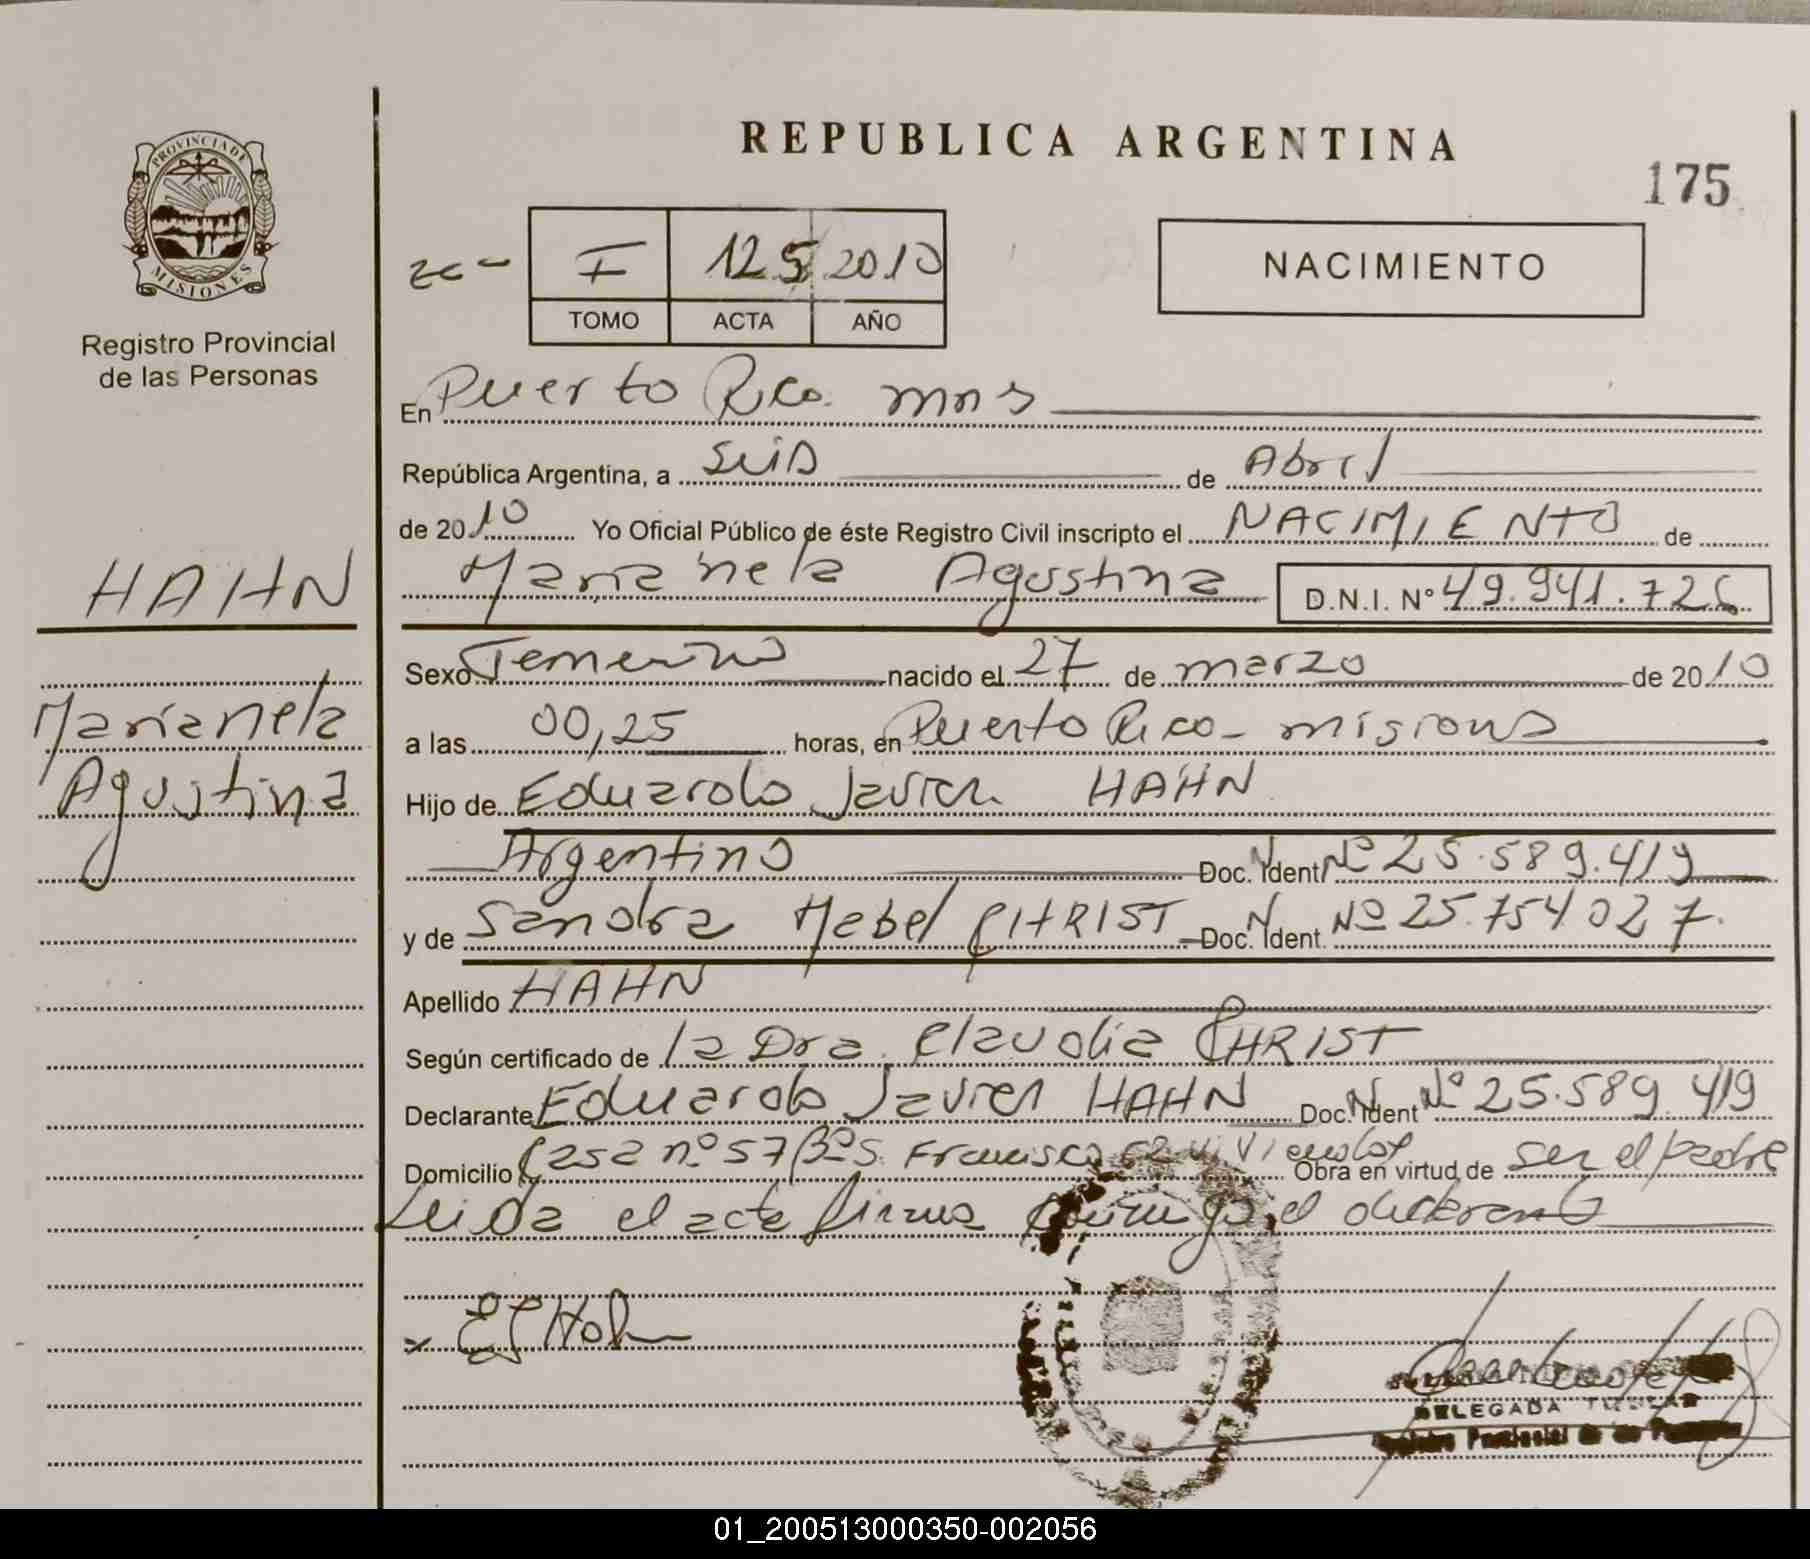 REPUBLICA ARGENTINA
175
PROVINCIA DE
MISIONES
Registro Provincial
de las Personas
I 125 2010
TOMO ACTA AÑO
NACIMIENTO
En Puerto Rico. mns
República Argentina, a seis de Abril
de 2010 Yo Oficial Público de éste Registro Civil inscripto el NACIMIENTO de
HAHN
Marianela Agostina D.N.I. N° 49.941.726
Sexo Femenino nacido el 27 de marzo de 2010
Marianela
a las 00,25 horas, en Puerto Rico - misiones
Agostina
Hijo de Eduardo Javier HAHN
Argentino Doc. N. Ident Nº 25.589.419
y de Sandra Mabel CHRIST Doc. N. Ident. Nº 25.754.027.
Apellido HAHN
Según certificado de la Dra. Claudia CHRIST
Declarante Eduardo Javier HAHN Doc. N. Ident Nº 25.589.419
Domicilio Casa nº 57 Bº S. Francisco 62 Viviendas Obra en virtud de ser el padre
Leida el acta firma conmigo el declarante
DELEGADA TITULAR
Registro Provincial de las Personas
01_200513000350-002056